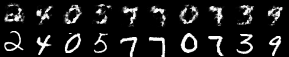 2 4 0 5 7 7 0 7 3 9
2 4 0 5 7 7 0 7 3 9